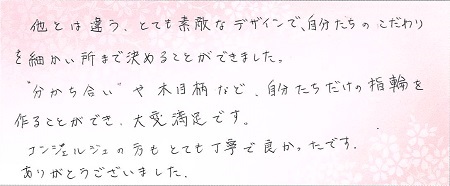 他とは違う、とても素敵なデザインで、自分たちのこだわり
を細かい所まで決めることができました。
"分かち合い"や木目柄など、自分たちだけの指輪を
作ることができ、大変満足です。
コンシェルジュの方もとても丁寧で良かったです。
ありがとうございました。